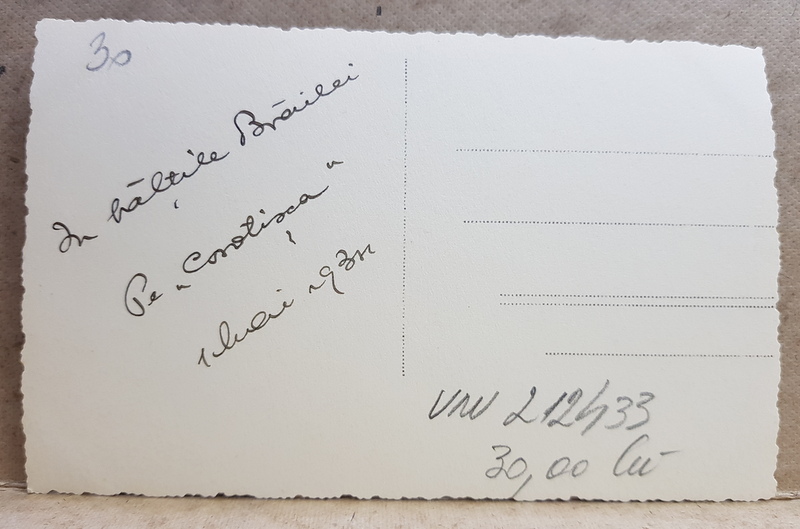 30
In bălțile Brăilei
Pe „Corotișca"
1 Mai 193
212433
30,00 lei